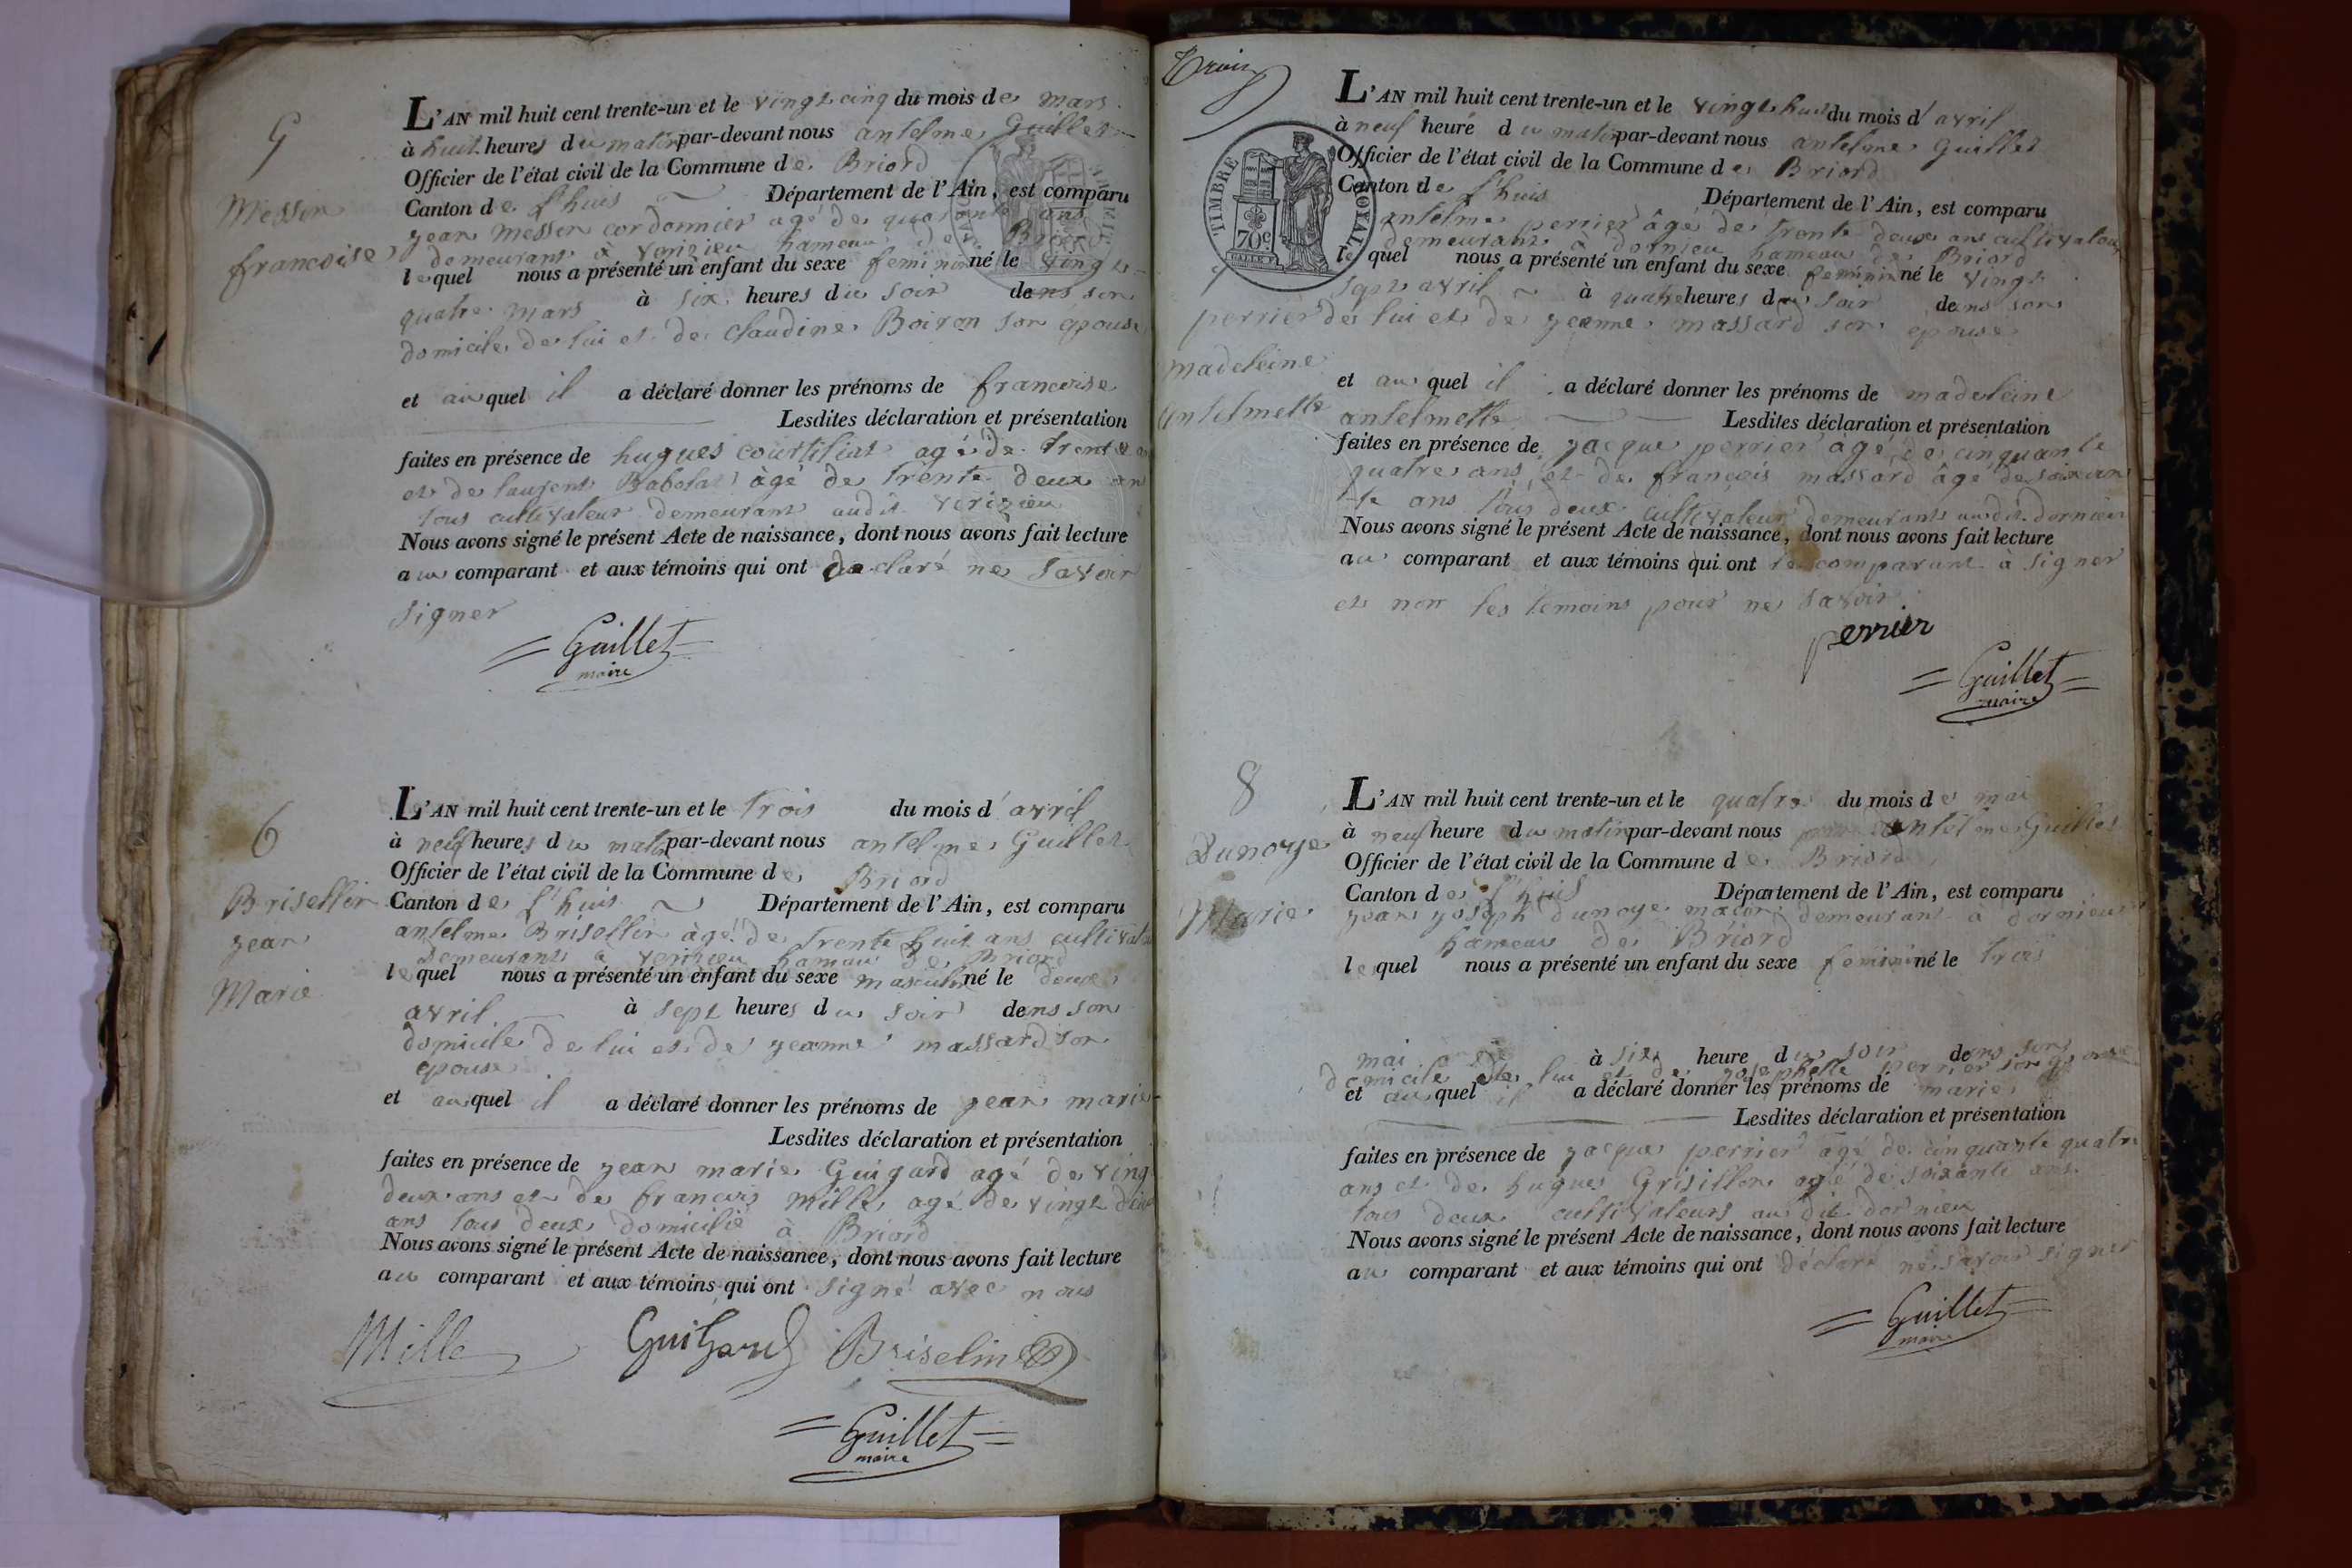 5
Messon
francoise
L'AN mil huit cent trente-un et le vingt cinq du mois de mars
à huit heures du matin par-devant nous antelme Guillet
Officier de l'état civil de la Commune de Briord
Canton de l'huis Département de l'Ain, est comparu
jean messon cordonnier agé de quarante ans
demeurant à verizieu hameau de Briord
lequel nous a présenté un enfant du sexe feminin né le vingt
quatre mars à six heures du soir dans son
domicile de lui et de Claudine Boiron son epouse
et au quel il a déclaré donner les prénoms de francoise
Lesdites déclaration et présentation
faites en présence de hugues courtiliat agé de trente
et de laurent Babolat âgé de trente deux an
tous cultivateur demeurant audit verizieu
Nous avons signé le présent Acte de naissance, dont nous avons fait lecture
au comparant et aux témoins qui ont declaré ne savoir
signer
Guillet
maire
6
Brisellin
jean
Marie
L'AN mil huit cent trente-un et le trois du mois d'avril
à neuf heures du matin par-devant nous antelme Guillet
Officier de l'état civil de la Commune de Briord
Canton de l'huis Département de l'Ain, est comparu
antelme Brisellin âgé de trente huit ans cultivat
demeurant à verizieu hamau de Briord
lequel nous a présenté un enfant du sexe masculin né le deux
avril à sept heures du soir dans son
domicile de lui et de jeanne massard son
epouse
et au quel il a déclaré donner les prénoms de jean marie
Lesdites déclaration et présentation
faites en présence de jean marie Guigard agé de ving
deux ans et de francois mille agé de vingt deux
ans tous deux domicilié à Briord
Nous avons signé le présent Acte de naissance, dont nous avons fait lecture
au comparant et aux témoins qui ont signé avec nous
Mille Guihard Briselin
Guillet
maire
Trois
TIMBRE ROYAL
70c
7
perrier
madeleine
antelmette
L'AN mil huit cent trente-un et le vingt huit du mois d'avril
à neuf heure du matin par-devant nous antelme Guillet
Officier de l'état civil de la Commune de Briord
Canton de l'huis Département de l'Ain, est comparu
antelme perrier âgé de trente deux ans cultivateur
demeurant à dornieu hameau de Briord
lequel nous a présenté un enfant du sexe feminin né le vingt
sept avril à quatre heures du soir dans son
de lui et de jeanne massard son epouse
et au quel il a déclaré donner les prénoms de madeleine
antelmette Lesdites déclaration et présentation
faites en présence de jacque perrier âgé de cinquante
quatre ans et de françois massard âgé de soixan
te ans tous deux cultivateur demeurant audit dornieu
Nous avons signé le présent Acte de naissance, dont nous avons fait lecture
au comparant et aux témoins qui ont le comparant à signer
et non les temoins pour ne savoir
perrier
Guillet
maire
8
Dunoye
Marie
L'AN mil huit cent trente-un et le quatre du mois de mai
à neuf heure du matin par-devant nous antelme Guillet
Officier de l'état civil de la Commune de Briord
Canton de l'huis Département de l'Ain, est comparu
jean joseph dunoye maçon demeurant à dornieu
hameau de Briord
lequel nous a présenté un enfant du sexe feminin né le trois
mai à six heure du soir dans son
domicile de lui et de josephette perrier son epouse
et au quel il a déclaré donner les prénoms de marie
Lesdites déclaration et présentation
faites en présence de jacque perrier agé de cinquante quatre
ans et de hugues Grisillon agé de soixante ans
tous deux cultivateurs au dit dornieu
Nous avons signé le présent Acte de naissance, dont nous avons fait lecture
au comparant et aux témoins qui ont déclaré ne savoir signer
Guillet
maire